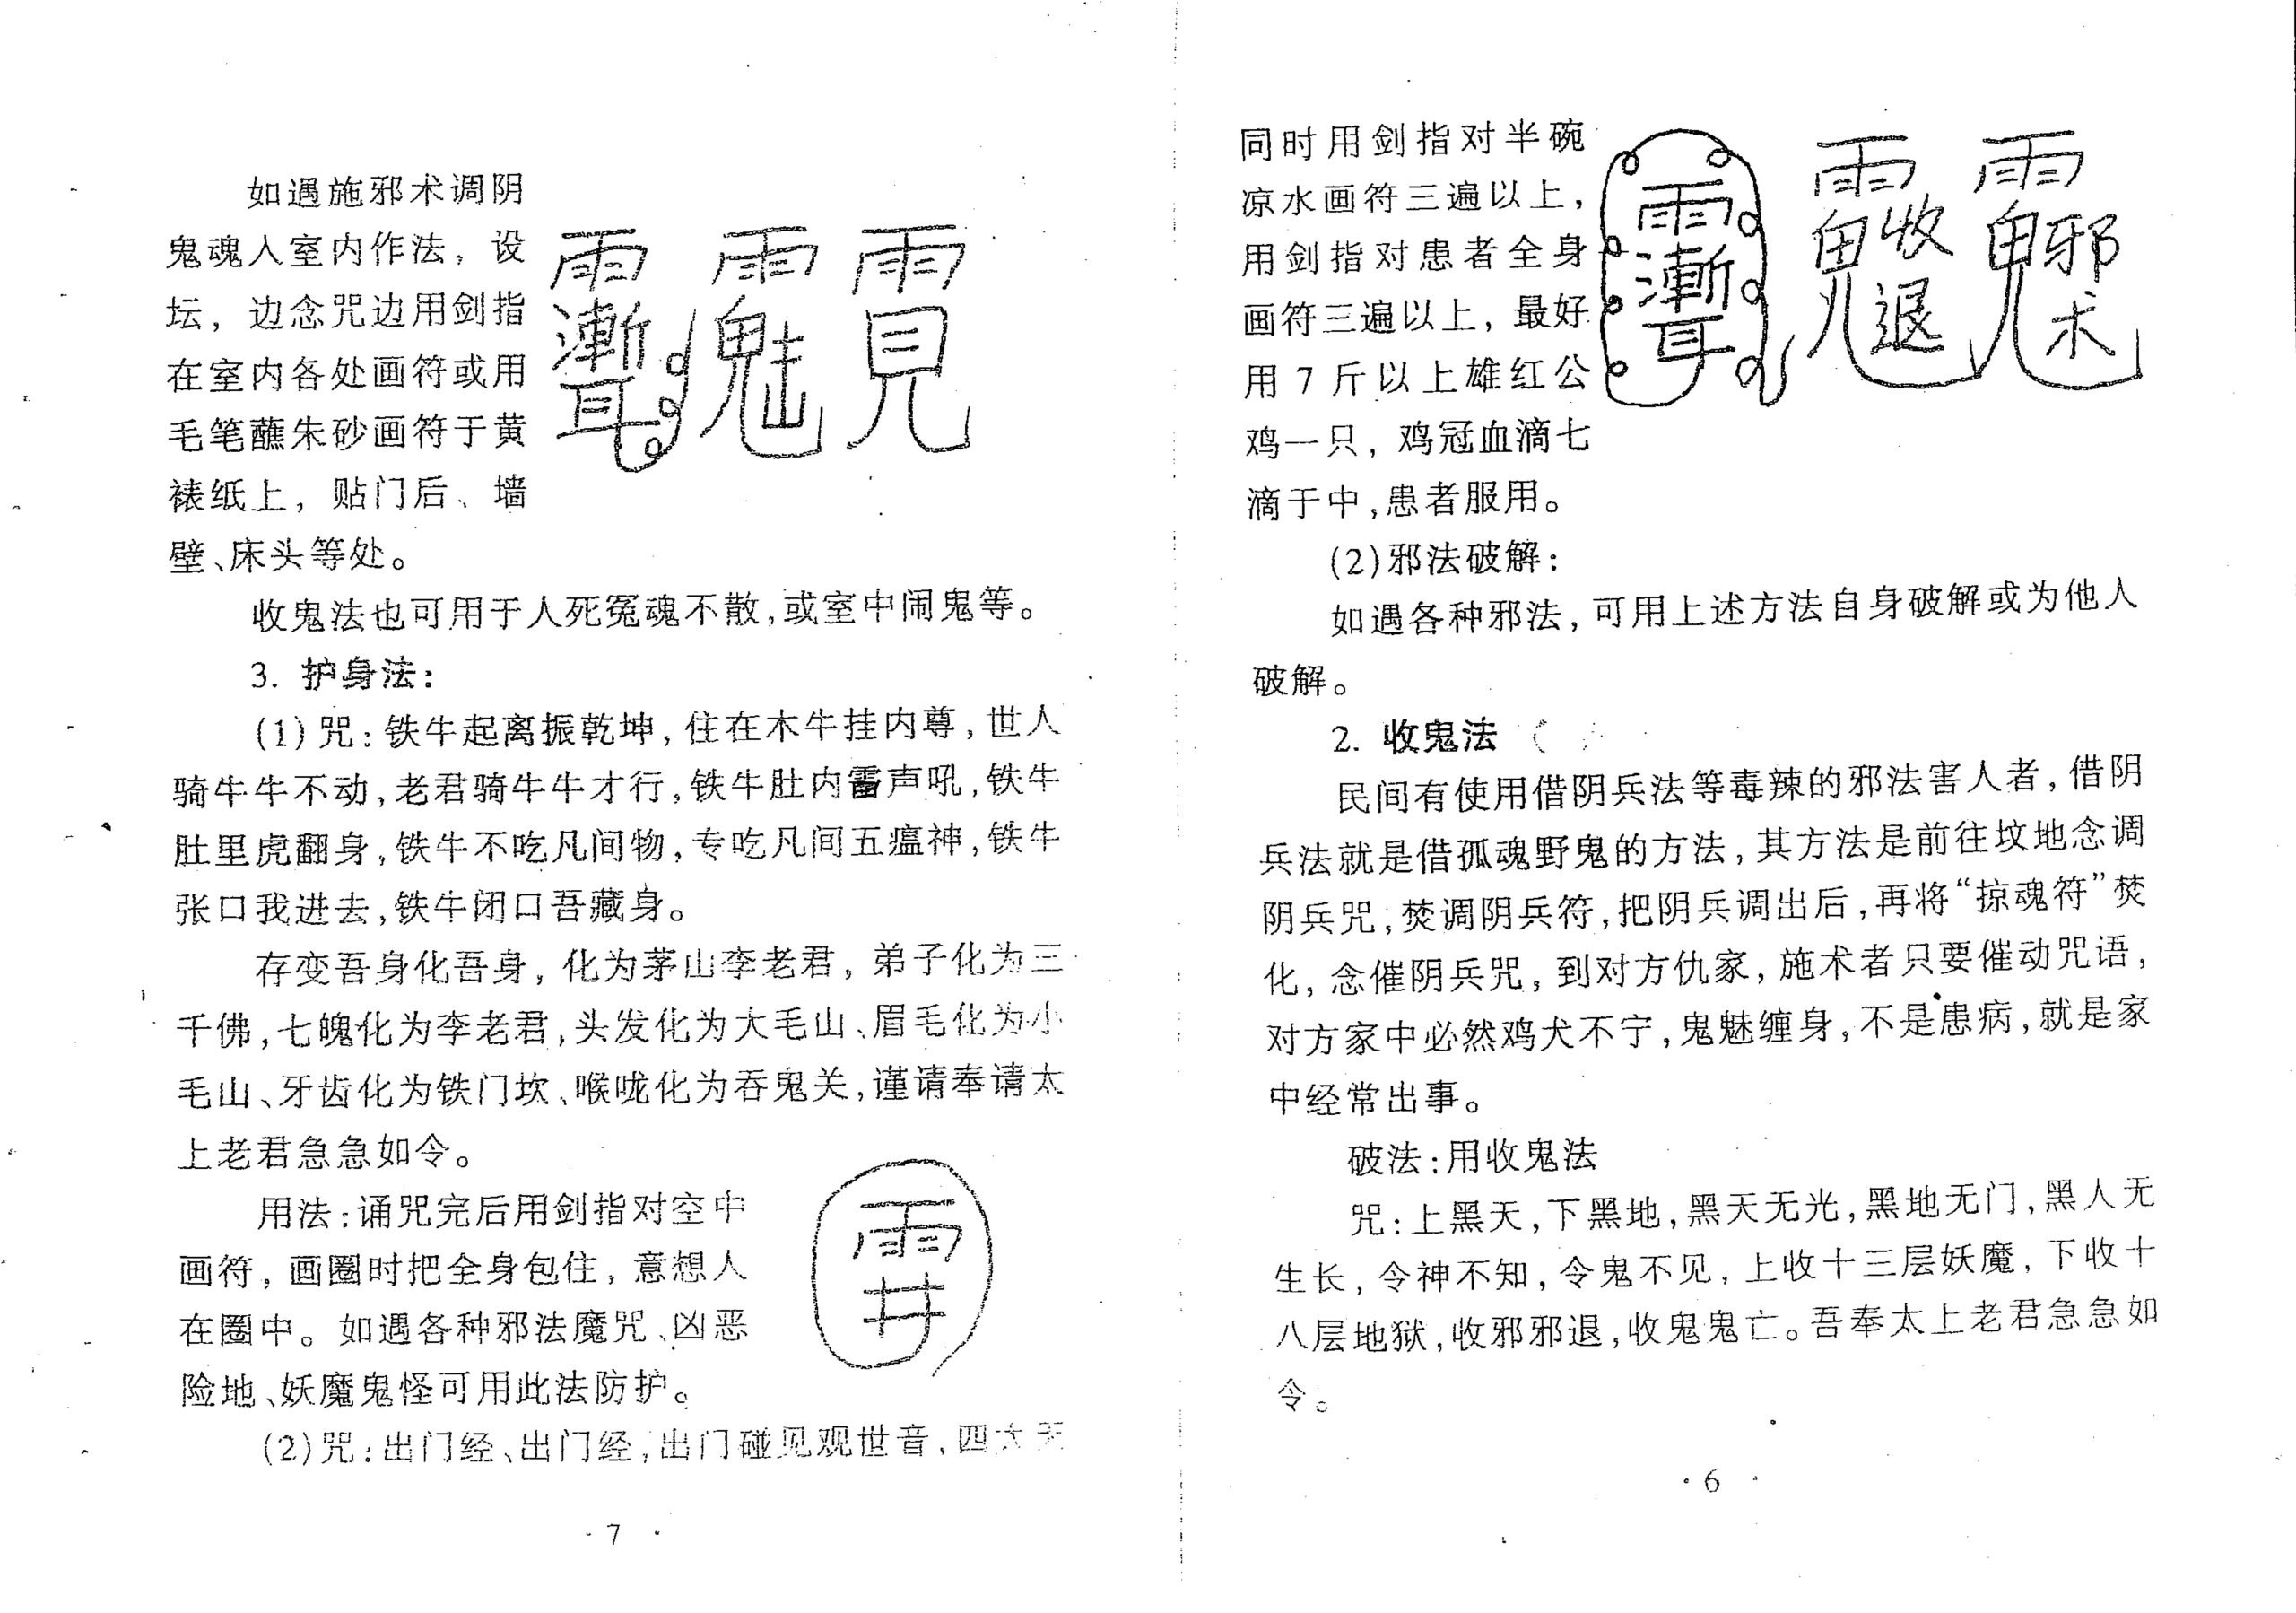 同时用剑指对半碗
凉水画符三遍以上，
用剑指对患者全身
画符三遍以上，最好
用7斤以上雄红公
鸡一只，鸡冠血滴七
滴于中，患者服用。
(2)邪法破解：
如遇各种邪法，可用上述方法自身破解或为他人
破解。
2. 收鬼法
民间有使用借阴兵法等毒辣的邪法害人者，借阴
兵法就是借孤魂野鬼的方法，其方法是前往坟地念调
阴兵咒，焚调阴兵符，把阴兵调出后，再将“掠魂符”焚
化，念催阴兵咒，到对方仇家，施术者只要催动咒语，
对方家中必然鸡犬不宁，鬼魅缠身，不是患病，就是家
中经常出事。
破法：用收鬼法
咒：上黑天，下黑地，黑天无光，黑地无门，黑人无
生长，令神不知，令鬼不见，上收十三层妖魔，下收十
八层地狱，收邪邪退，收鬼鬼亡。吾奉太上老君急急如
令。
·6·
如遇施邪术调阴
鬼魂人室内作法，设
坛，边念咒边用剑指
在室内各处画符或用
毛笔蘸朱砂画符于黄
裱纸上，贴门后、墙
壁、床头等处。
收鬼法也可用于人死冤魂不散，或室中闹鬼等。
3. 护身法：
(1)咒：铁牛起离振乾坤，住在木牛挂内尊，世人
骑牛牛不动，老君骑牛牛才行，铁牛肚内雷声吼，铁牛
肚里虎翻身，铁牛不吃凡间物，专吃凡间五瘟神，铁牛
张口我进去，铁牛闭口吾藏身。
存变吾身化吾身，化为茅山李老君，弟子化为三
千佛，七魄化为李老君，头发化为大毛山、眉毛化为小
毛山、牙齿化为铁门坎、喉咙化为吞鬼关，谨请奉请太
上老君急急如令。
用法：诵咒完后用剑指对空中
画符，画圈时把全身包住，意想人
在圈中。如遇各种邪法魔咒、凶恶
险地、妖魔鬼怪可用此法防护。
(2)咒：出门经、出门经，出门碰见观世音，四大天
·7·